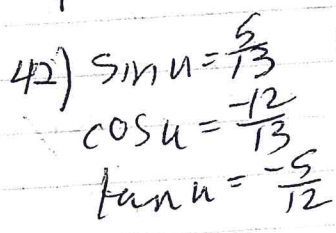 42) sin u = 5/13
cos u = -12/13
tan u = -5/12